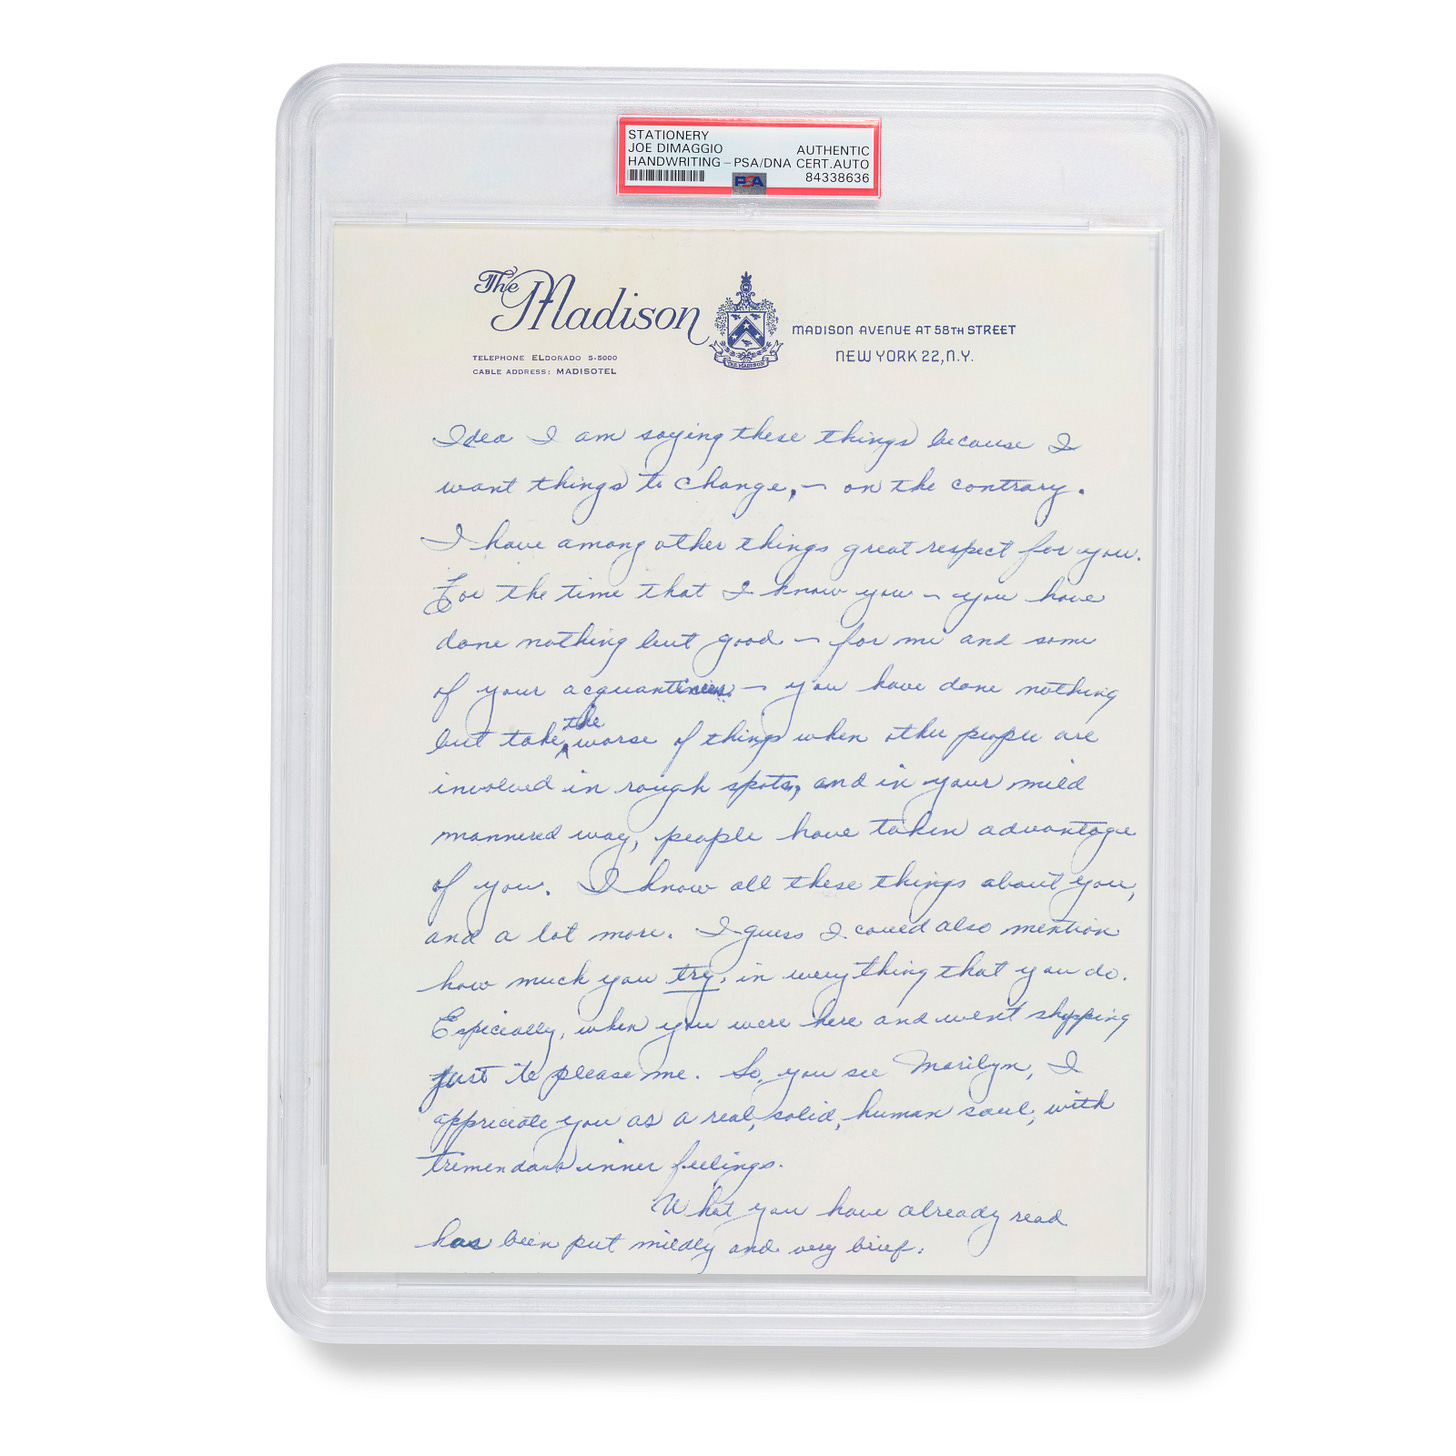 STATIONERY
JOE DIMAGGIO AUTHENTIC
HANDWRITING - PSA/DNA CERT.AUTO
PSA 84338636
The Madison
MADISON AVENUE AT 58TH STREET
NEW YORK 22, N.Y.
TELEPHONE ELDORADO 5-5000
CABLE ADDRESS: MADISOTEL
THE MADISON
Idea I am saying these things because I
want things to change, - on the contrary.
I have among other things great respect for you.
For the time that I know you - you have
done nothing but good - for me and some
of your - you have done nothing
but take the worse of things when other people are
involved in rough spots, and in your mild
mannered way, people have taken advantage
of you. I know all these things about you,
and a lot more. I guess I could also mention
how much you try, in everything that you do.
Especially, when you were here and went shopping
just to please me. So, you see Marilyn, I
appreciate you as a real, solid, human soul, with
tremendous inner feelings.
What you have already read
has been put mildly and very brief.